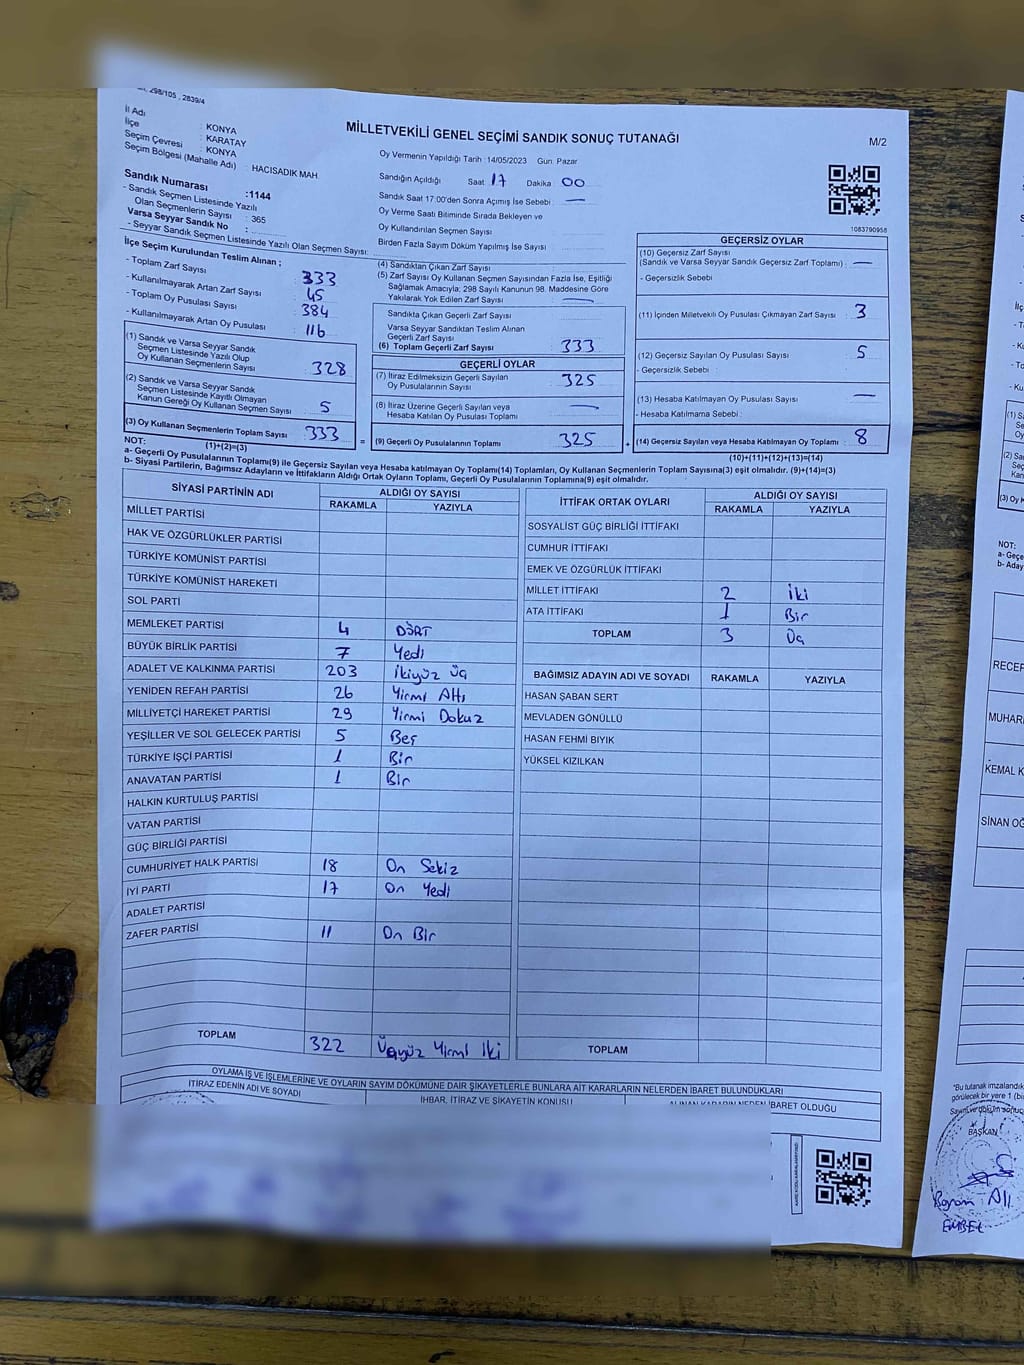 298/105 , 2839/4
İl Adı : KONYA
İlçe : KARATAY
Seçim Çevresi : KONYA
Seçim Bölgesi (Mahalle Adı) : HACISADIK MAH.
MİLLETVEKİLİ GENEL SEÇİMİ SANDIK SONUÇ TUTANAĞI
M/2
Oy Vermenin Yapıldığı Tarih :14/05/2023 Gün. Pazar
Sandığın Açıldığı Saat 17 Dakika 00
Sandık Saat 17:00'den Sonra Açımış İse Sebebi : —
Oy Verme Saati Bitiminde Sırada Bekleyen ve
Oy Kullandırılan Seçmen Sayısı :
Birden Fazla Sayım Döküm Yapılmış İse Sayısı :
1083790958
Sandık Numarası :1144
- Sandık Seçmen Listesinde Yazılı
Olan Seçmenlerin Sayısı : 365
Varsa Seyyar Sandık No :
- Seyyar Sandık Seçmen Listesinde Yazılı Olan Seçmen Sayısı:
İlçe Seçim Kurulundan Teslim Alınan ;
- Toplam Zarf Sayısı : 333
- Kullanılmayarak Artan Zarf Sayısı : 45
- Toplam Oy Pusulası Sayısı : 384
- Kullanılmayarak Artan Oy Pusulası : 116
(1) Sandık ve Varsa Seyyar Sandık
Seçmen Listesinde Yazılı Olup
Oy Kullanan Seçmenlerin Sayısı : 328
(2) Sandık ve Varsa Seyyar Sandık
Seçmen Listesinde Kayıtlı Olmayan
Kanun Gereği Oy Kullanan Seçmen Sayısı : 5
(3) Oy Kullanan Seçmenlerin Toplam Sayısı : 333
(1)+(2)=(3)
(4) Sandıktan Çıkan Zarf Sayısı :
(5) Zarf Sayısı Oy Kullanan Seçmen Sayısından Fazla İse, Eşitliği
Sağlamak Amacıyla; 298 Sayılı Kanunun 98. Maddesine Göre
Yakılarak Yok Edilen Zarf Sayısı : —
Sandıkta Çıkan Geçerli Zarf Sayısı :
Varsa Seyyar Sandıktan Teslim Alınan
Geçerli Zarf Sayısı :
(6) Toplam Geçerli Zarf Sayısı : 333
GEÇERLİ OYLAR
(7) İtiraz Edilmeksizin Geçerli Sayılan
Oy Pusulalarının Sayısı : 325
(8) İtiraz Üzerine Geçerli Sayılan veya
Hesaba Katılan Oy Pusulası Toplamı : —
= (9) Geçerli Oy Pusulalarının Toplamı : 325 +
GEÇERSİZ OYLAR
(10) Geçersiz Zarf Sayısı
(Sandık ve Varsa Seyyar Sandık Geçersiz Zarf Toplamı) : —
- Geçersizlik Sebebi :
(11) İçinden Milletvekili Oy Pusulası Çıkmayan Zarf Sayısı : 3
(12) Geçersiz Sayılan Oy Pusulası Sayısı : 5
- Geçersizlik Sebebi :
(13) Hesaba Katılmayan Oy Pusulası Sayısı : —
- Hesaba Katılmama Sebebi :
(14) Geçersiz Sayılan veya Hesaba Katılmayan Oy Toplamı : 8
(10)+(11)+(12)+(13)=(14)
NOT:
a- Geçerli Oy Pusulalarının Toplamı(9) ile Geçersiz Sayılan veya Hesaba katılmayan Oy Toplamı(14) Toplamları, Oy Kullanan Seçmenlerin Toplam Sayısına(3) eşit olmalıdır. (9)+(14)=(3)
b- Siyasi Partilerin, Bağımsız Adayların ve İttifakların Aldığı Ortak Oyların Toplamı, Geçerli Oy Pusulalarının Toplamına(9) eşit olmalıdır.
SİYASİ PARTİNİN ADI ALDIĞI OY SAYISI
RAKAMLA YAZIYLA
MİLLET PARTİSİ
HAK VE ÖZGÜRLÜKLER PARTİSİ
TÜRKİYE KOMÜNİST PARTİSİ
TÜRKİYE KOMÜNİST HAREKETİ
SOL PARTİ
MEMLEKET PARTİSİ 4 DÖRT
BÜYÜK BİRLİK PARTİSİ 7 Yedi
ADALET VE KALKINMA PARTİSİ 203 İkiyüz üç
YENİDEN REFAH PARTİSİ 26 Yirmi Altı
MİLLİYETÇİ HAREKET PARTİSİ 29 Yirmi Dokuz
YEŞİLLER VE SOL GELECEK PARTİSİ 5 Beş
TÜRKİYE İŞÇİ PARTİSİ 1 Bir
ANAVATAN PARTİSİ 1 Bir
HALKIN KURTULUŞ PARTİSİ
VATAN PARTİSİ
GÜÇ BİRLİĞİ PARTİSİ
CUMHURİYET HALK PARTİSİ 18 On Sekiz
İYİ PARTİ 17 On Yedi
ADALET PARTİSİ
ZAFER PARTİSİ 11 On Bir
TOPLAM 322 Üçyüz Yirmi İki
İTTİFAK ORTAK OYLARI ALDIĞI OY SAYISI
RAKAMLA YAZIYLA
SOSYALİST GÜÇ BİRLİĞİ İTTİFAKI
CUMHUR İTTİFAKI
EMEK VE ÖZGÜRLÜK İTTİFAKI
MİLLET İTTİFAKI 2 İki
ATA İTTİFAKI 1 Bir
TOPLAM 3 Üç
BAĞIMSIZ ADAYIN ADI VE SOYADI RAKAMLA YAZIYLA
HASAN ŞABAN SERT
MEVLADEN GÖNÜLLÜ
HASAN FEHMİ BIYIK
YÜKSEL KIZILKAN
TOPLAM
OYLAMA İŞ VE İŞLEMLERİNE VE OYLARIN SAYIM DÖKÜMÜNE DAİR ŞİKAYETLERLE BUNLARA AİT KARARLARIN NELERDEN İBARET BULUNDUKLARI
İTİRAZ EDENİN ADI VE SOYADI İHBAR, İTİRAZ VE ŞİKAYETİN KONUSU ALINAN KARARIN NEDEN İBARET OLDUĞU
NOT:
a- Geçe
b- Aday
RECEP
MUHAR
KEMAL K
SİNAN OĞ
"Bu tutanak imzalandık
görülecek bir yere 1 (bi
BAŞKAN